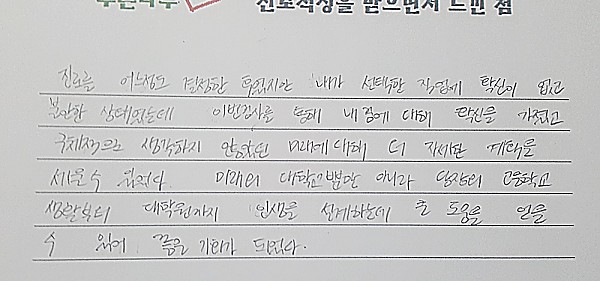 진로적성을 받으면서 느낀 점
진로를 어느정도 결정한 후였지만 내가 선택한 직업에 확신이 없고
불안한 상태였는데 이번검사를 통해 내 꿈에 대해 확신을 가졌고
구체적으로 생각하지 않았던 미래에 대해 더 자세한 계획을
세울 수 있었다. 미래의 대학교 뿐만 아니라 당장의 고등학교
생활부터 대학원까지 인생을 설계하는데 큰 도움을 얻을
수 있어 좋은 기회가 되었다.